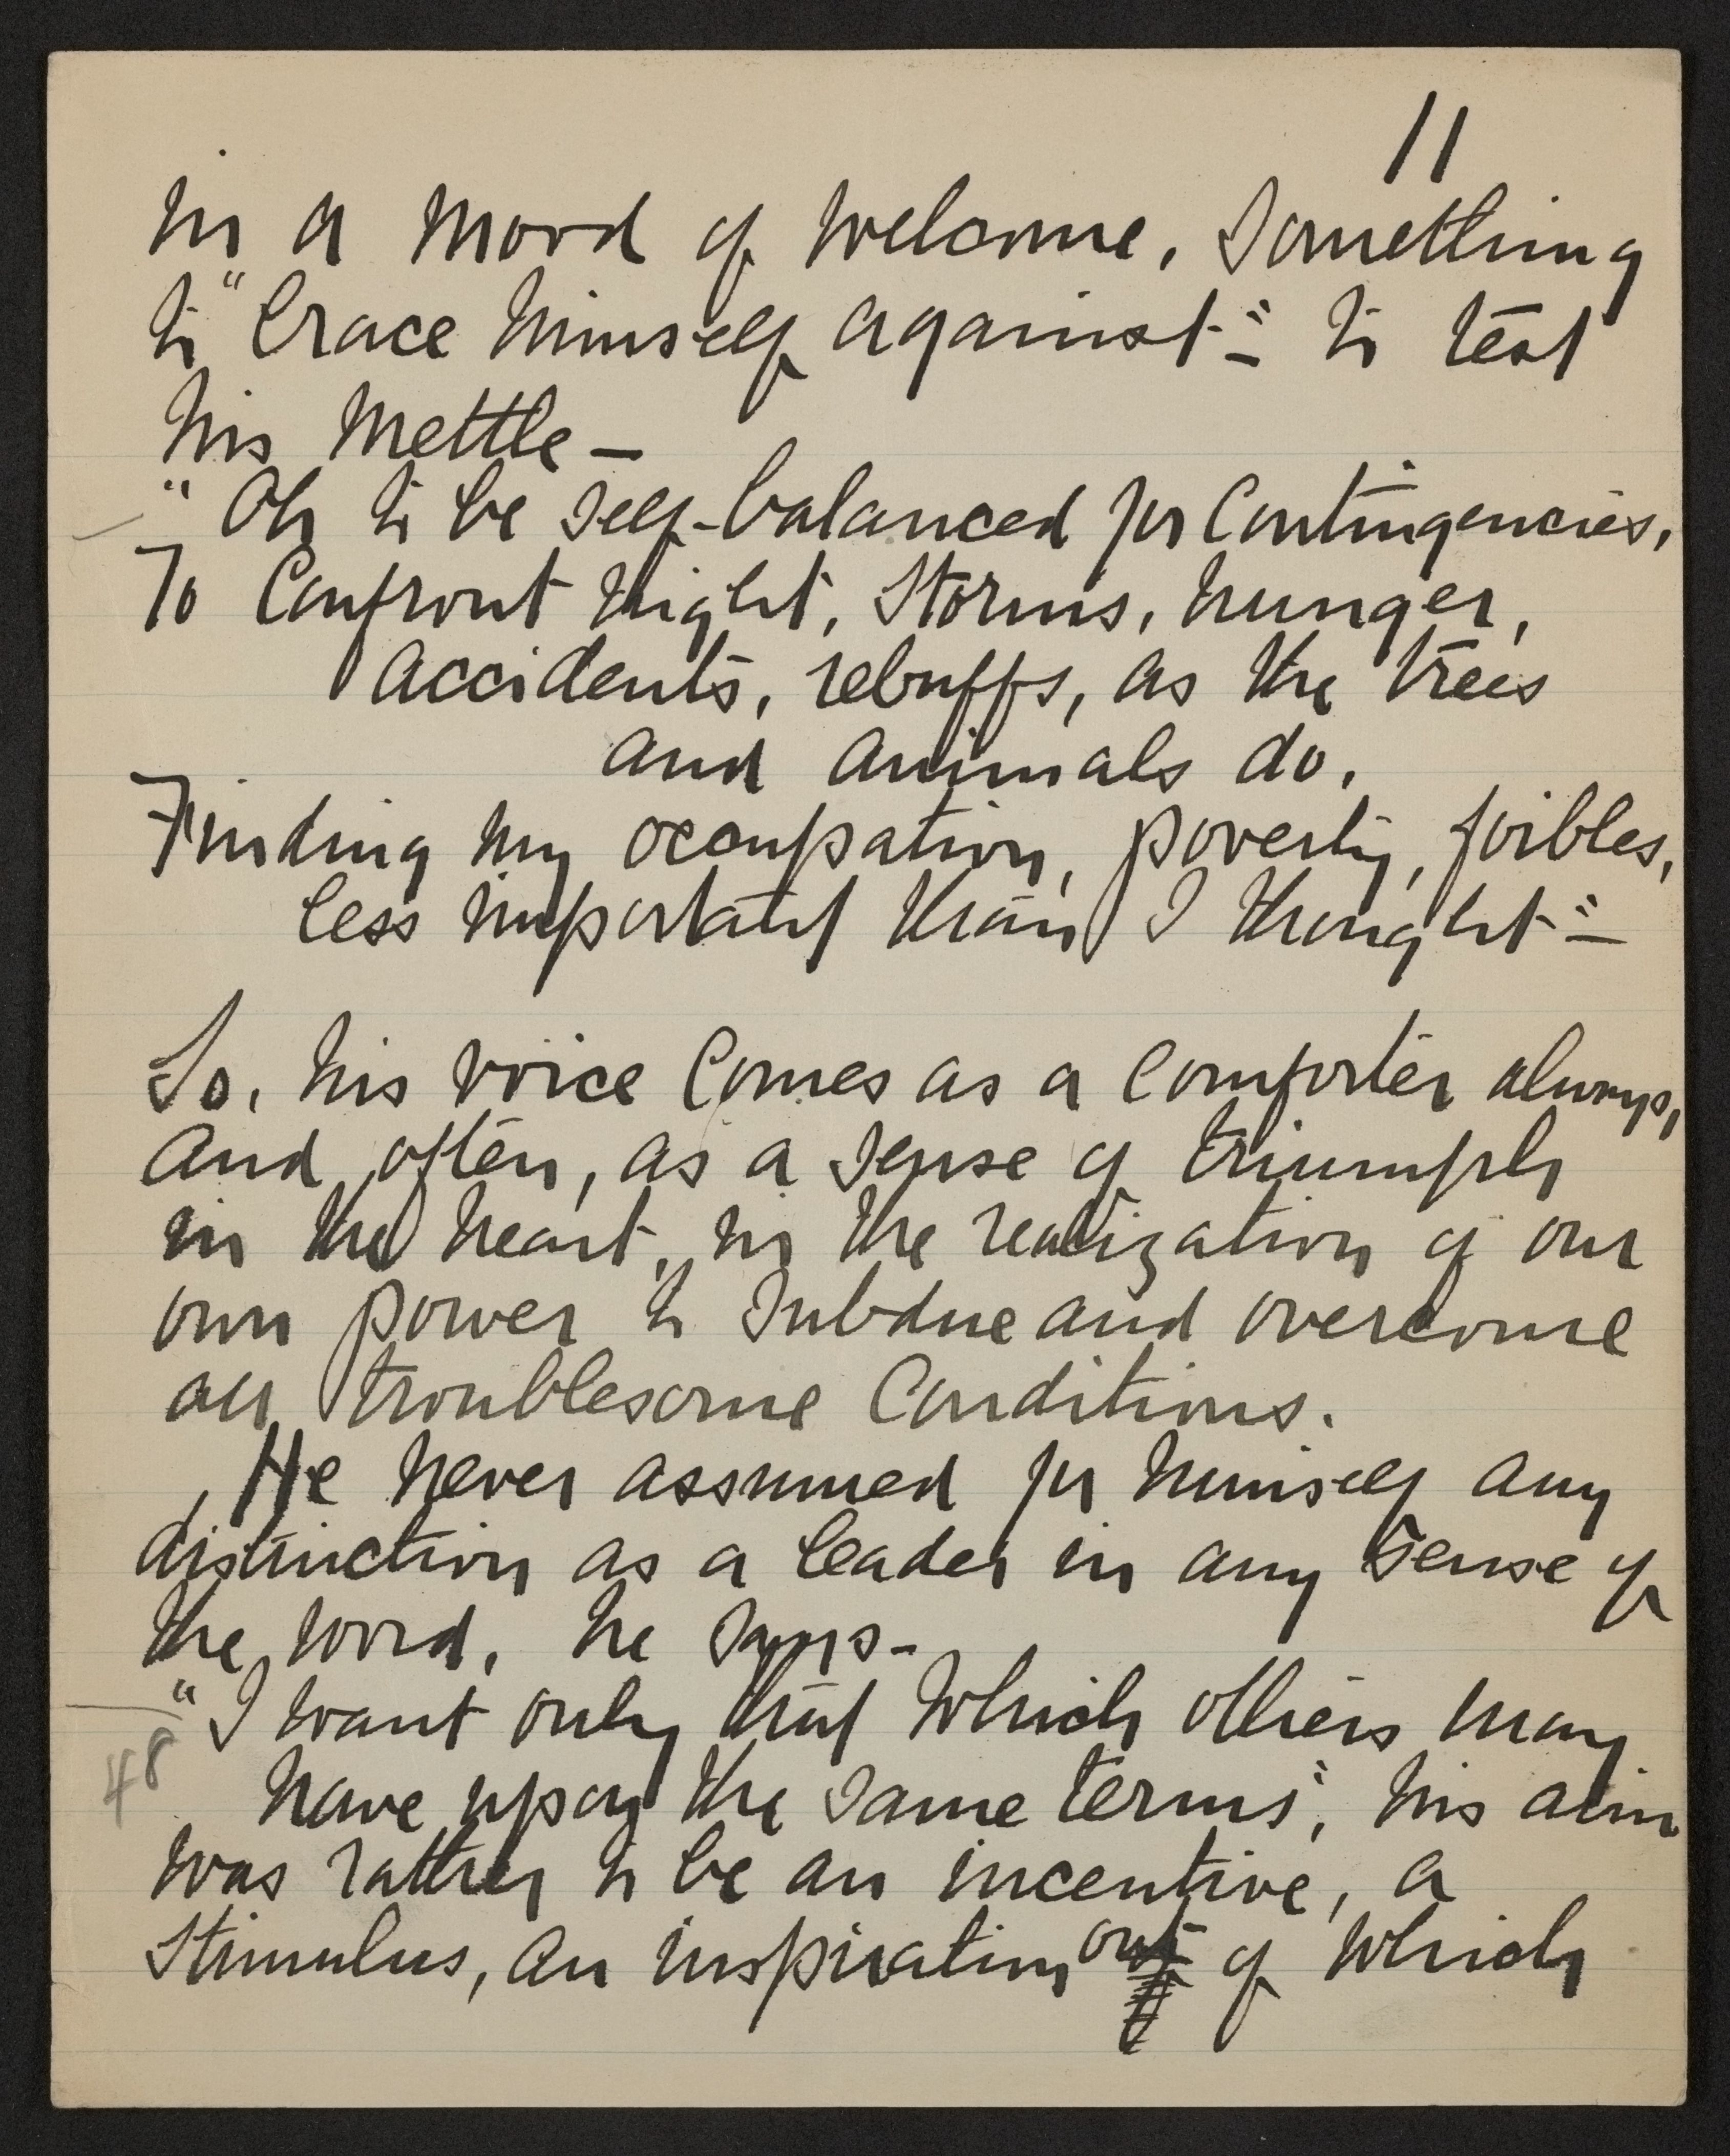 11
in a mood of welcome, something
to "brace himself against" – to test
his mettle –
" Oh to be self-balanced for contingencies,
To confront night, storms, hunger,
accidents, rebuffs, as the trees
and animals do,
Finding my occupation, poverty, foibles,
less important than I thought" –
So, his voice comes as a comforter always,
and often, as a sense of triumph
in the heart, in the realization of our
own power to subdue and overcome
all troublesome conditions.
He never assumed for himself any
distinction as a leader in any sense of
the word, he says –
" I want only that which others may
48
have upon the same terms", his aim
was rather to be an incentive, a
stimulus, an inspiration out of which